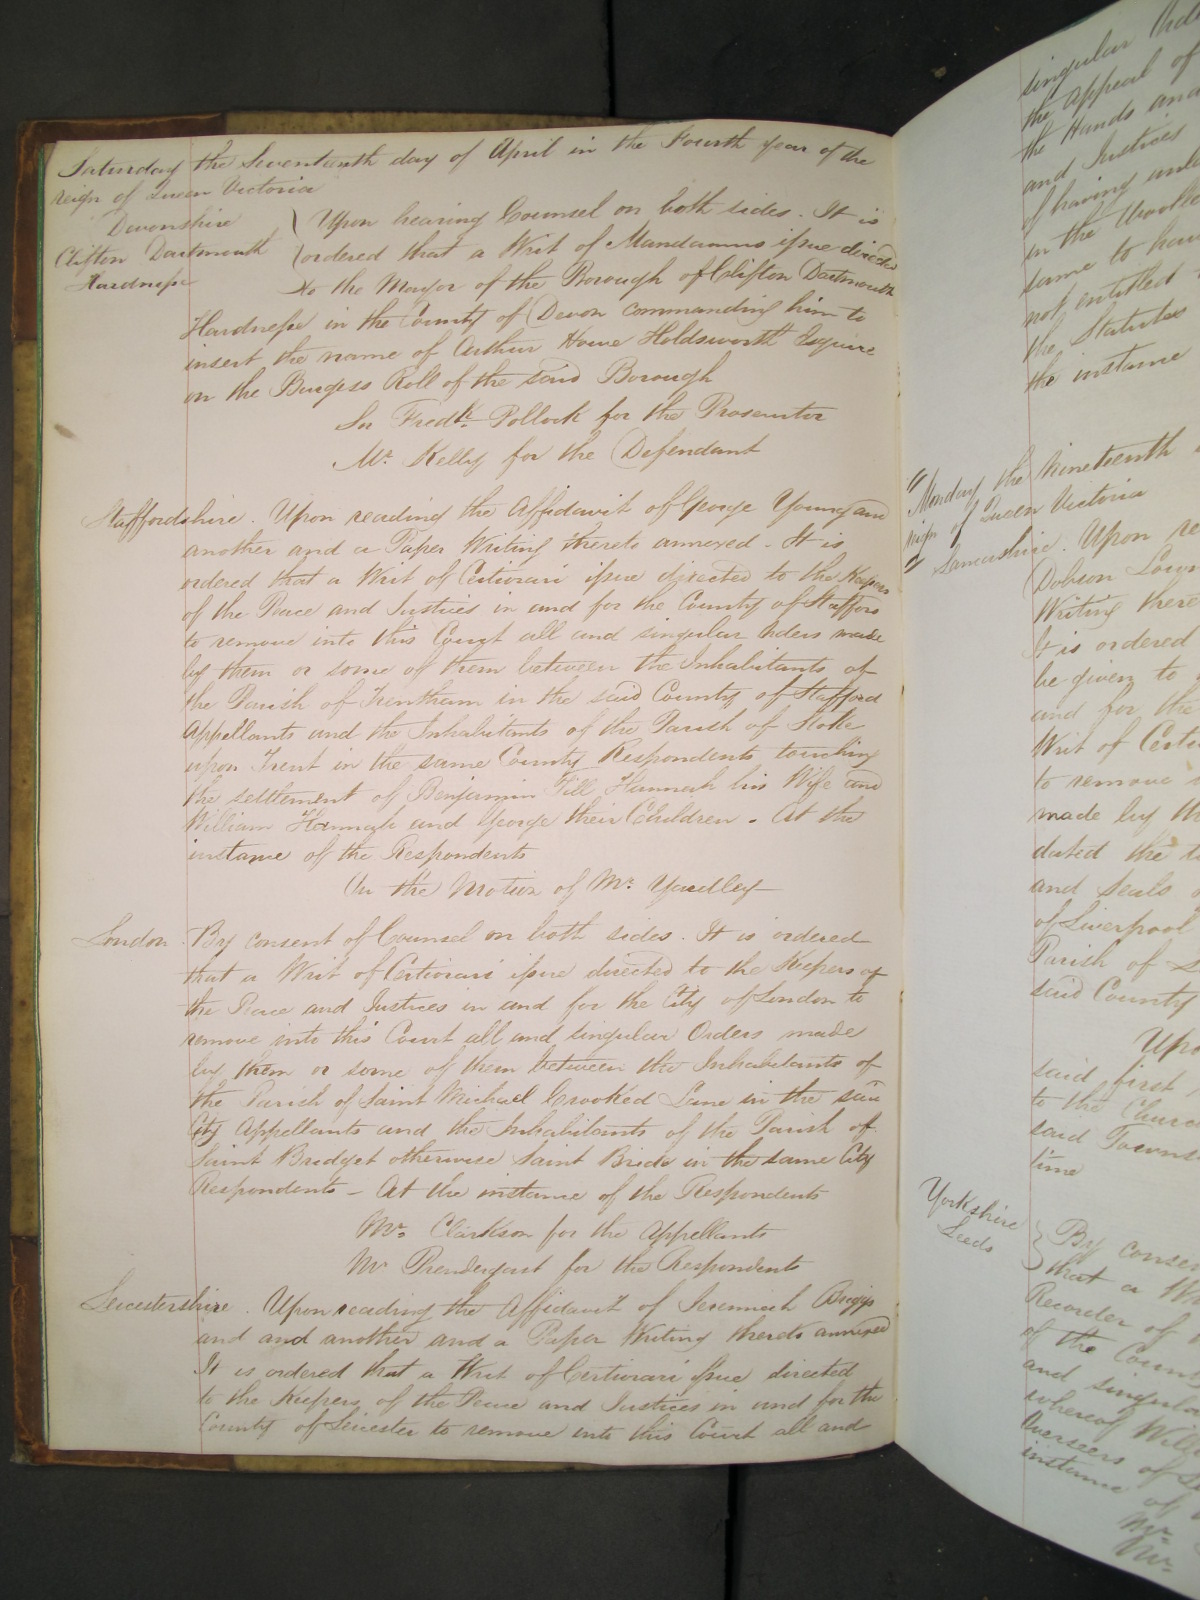 Saturday the Seventeenth day of April in the Fourth year of the
reign of Queen Victoria
Devonshire
Clifton Dartmouth
Hardneſs
Upon hearing Counsel on both sides. It is
ordered that a Writ of Mandamus iſsue directed
to the Mayor of the Borough of Clifton Dartmouth
Hardneſs in the County of Devon commanding him to
insert the name of Arthur Howe Holdsworth Esquire
on the Burgess Roll of the said Borough
Sir Fredk. Pollock for the Prosecutor
Mr. Kelly for the Defendant
Staffordshire. Upon reading the Affidavit of George Young and
another and a Paper Writing thereto annexed - It is
ordered that a Writ of Certiorari iſsue directed to the Keepers
of the Peace and Justices in and for the County of Stafford
to remove into this Court all and singular Orders made
by them or some of them between the Inhabitants of
the Parish of Trentham in the said County of Stafford
Appellants and the Inhabitants of the Parish of Stoke
upon Trent in the same County Respondents touching
the settlement of Benjamin Till Hannah his Wife and
William Hannah and George their Children. At the
instance of the Respondents
On the Motion of Mr. Yardley
London. By consent of Counsel on both sides. It is ordered
that a Writ of Certiorari iſsue directed to the Keepers of
the Peace and Justices in and for the City of London to
remove into this Court all and singular Orders made
by them or some of them between the Inhabitants of
the Parish of Saint Michael Crooked Lane in the said
City Appellants and the Inhabitants of the Parish of
Saint Bridget otherwise Saint Bride in the same City
Respondents - At the instance of the Respondents
Mr. Clarkson for the Appellants
Mr Prendergast for the Respondents
Leicestershire. Upon reading the Affidavit of Jeremiah Briggs
and and another and a Paper Writing thereto annexed
It is ordered that a Writ of Certiorari iſsue directed
to the Keepers of the Peace and Justices in and for the
County of Leicester to remove into this Court all and
singular
the Appeal of
the Hands and
and Justices
of having
in the
same to
not entitled
the Statutes
the instance
Monday the Nineteenth
reign of Queen Victoria
Lancashire. Upon
Dobson
Writing there
It is ordered
be given to
and for the
Writ of
to remove
made by
dated the
and Seals
of Liverpool
Parish of
said County
said first
to the
said
time
Yorkshire
Leeds
By
that a
Recorder of
of the
and
whereof
Overseers of
instance of
Mr.
Mr.